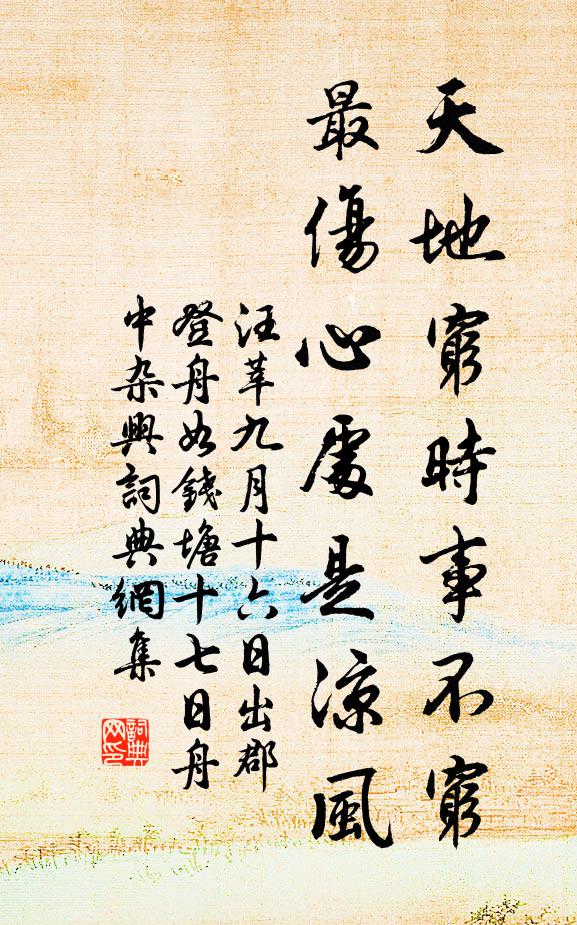 天地窮時事不窮
最傷心處是涼風
汪莘九月十六日出郡
登舟如錢塘十七日舟
中杂興詞典網集
詞典
网印